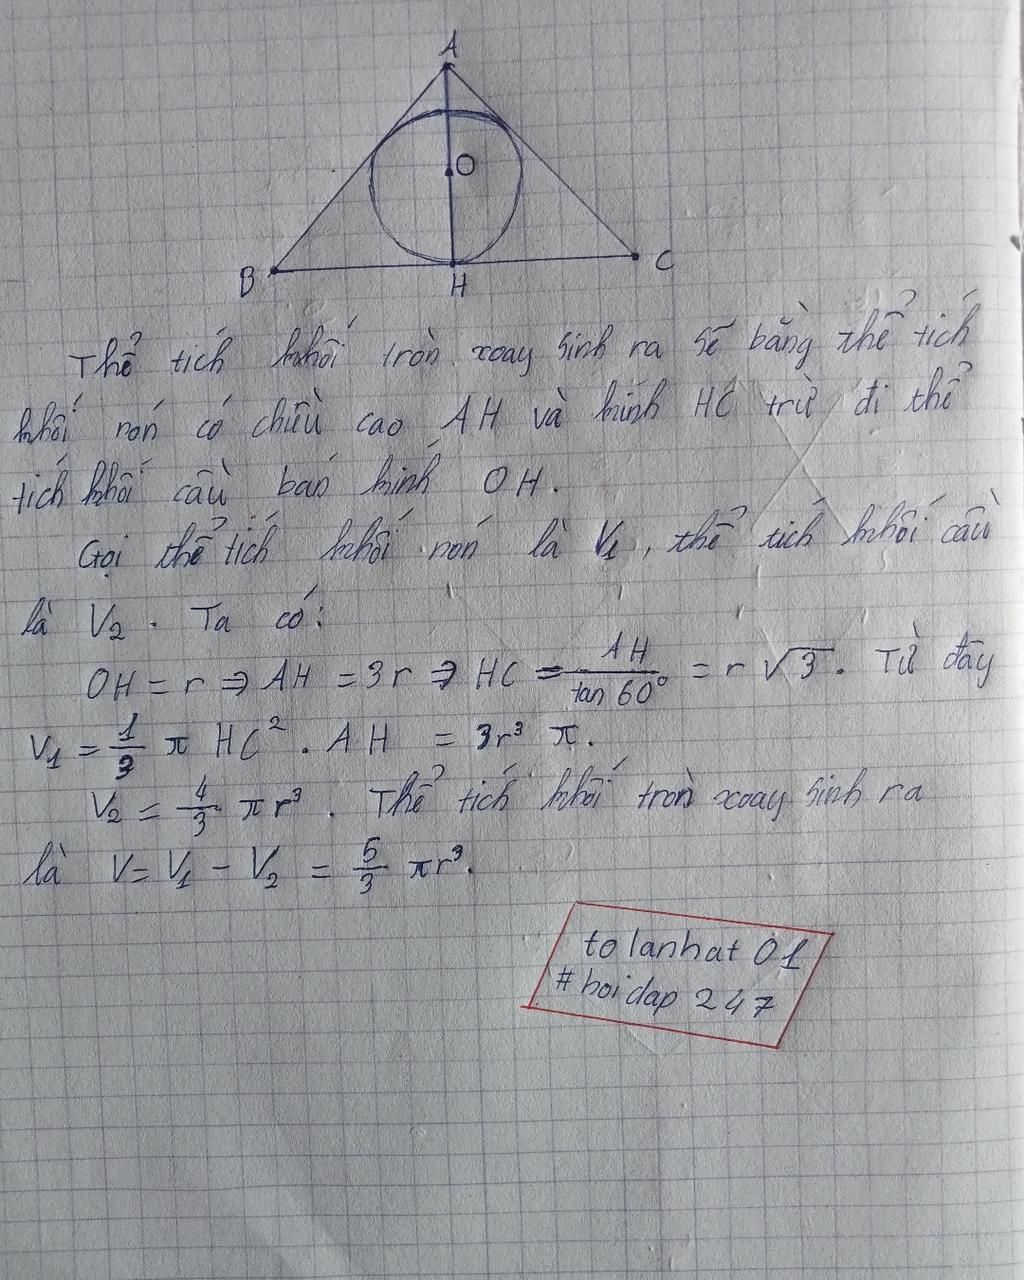 A
O
B
C
H
Thể tích khối tròn xoay sinh ra sẽ bằng thể tích
khối nón có chiều cao AH và kính HC trừ đi thể
tích khối cầu bán kính OH.
Gọi thể tích khối nón là V₁, thể tích khối cầu
là V₂. Ta có:
OH = r ⇒ AH = 3r ⇒ HC = AH / tan 60° = r √3. Từ đây
V₁ = 1/3 π HC². AH = 3r³ π.
V₂ = 4/3 π r³. Thể tích khối tròn xoay sinh ra
là V = V₁ - V₂ = 5/3 πr³.
tolanhat 01
#hoidap 247